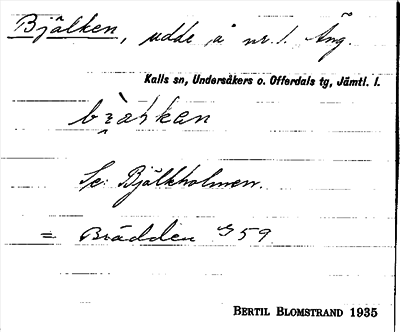 Bjälken, udde å nr. 1. Äng.
Kalls sn, Undersåkers o. Offerdals tg, Jämtl. l.
Se: Bjälkholmen.
= Brädden 59
BERTIL BLOMSTRAND 1935